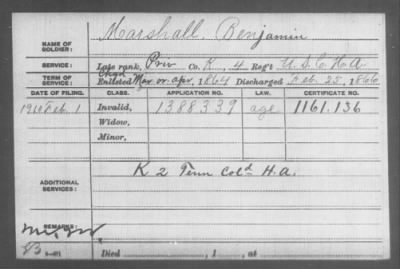 Marshall, Benjamin
NAME OF SOLDIER:
SERVICE: Late rank, Priv Co. K, 4 Reg't U.S.C.H.A
TERM OF SERVICE: Enlisted Mar or apr, 1864 Discharged Feb. 25, 1866
DATE OF FILING. CLASS. APPLICATION NO. LAW. CERTIFICATE NO.
1910 Feb. 1 Invalid, 1388339 age 1161.136
Widow,
Minor,
K 2 Tenn Col'd H.A.
ADDITIONAL SERVICES:
REMARKS:
Died , 1 , at